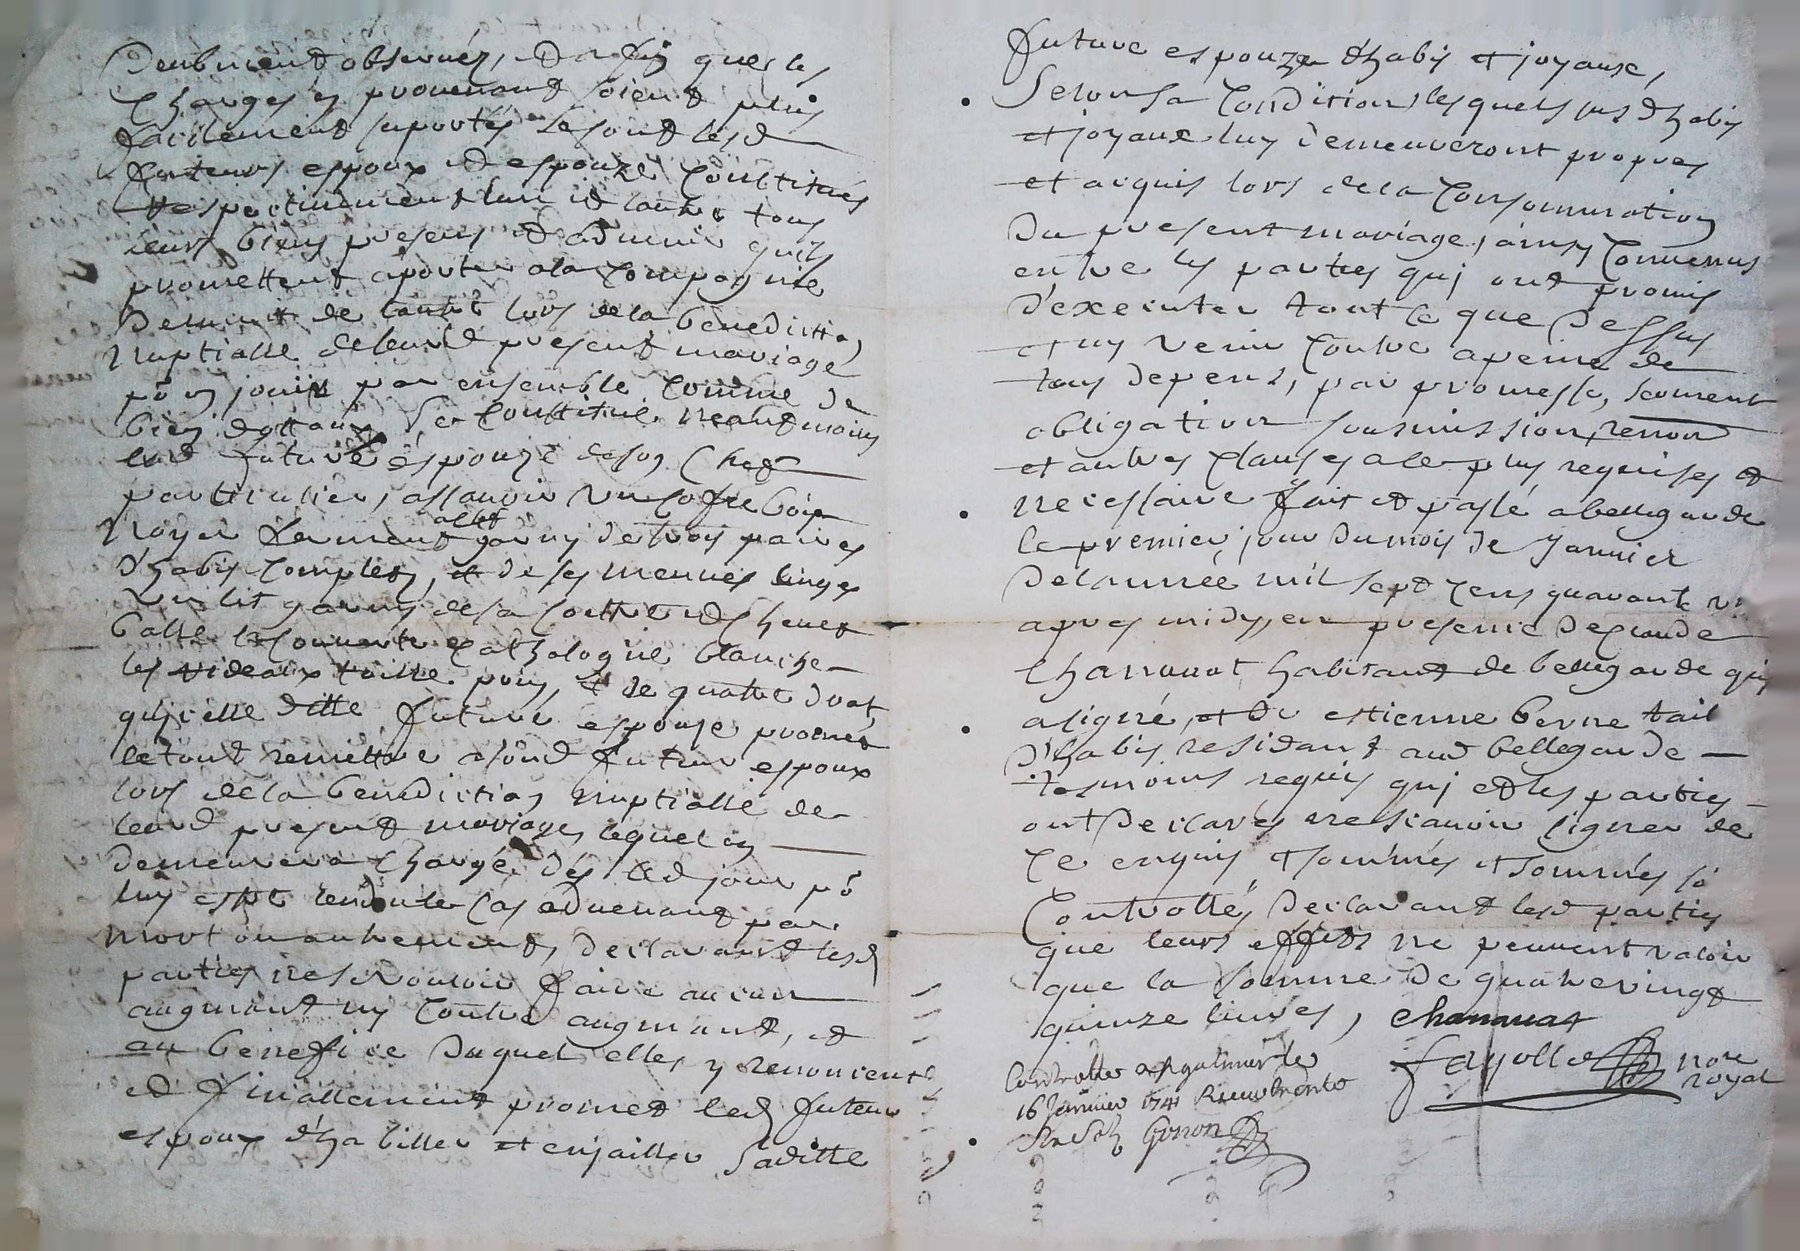 Deubment observer, et afin que les
charges en provenant soient plus
facilement suportés se sont lesd
futeurs espoux et espouze constitués
respectivement lun et lautre tous
leurs biens presens et advenir quils
promettent aporter a la compagnie
de lun et de lautre lors de la benediction
nuptialle de leurd present mariage
pō en jouir par ensemble comme de
bien dottaux Se constitue neantmoins
lad future espouze de son chef
particulier, assavoir un cofre bois
noyer fermant a clef garny de trois paires
d'habis complets, et de ses menues linges
un lit garny de sa coettre et chevet
balle la couverte cathalogne blanche
les rideaux toille poin, et de quattre drat
qu'icelle ditte future espouse promet
le tout remettre a sond futeur espoux
lors de la benediction nuptialle de
leurd present mariage, lequel en
demeurera chargé dés led jour pō
luy estre rendu le cas advenant par
mort ou autrement, declarant lesd
parties ne se vouloir faire aucun
augment ny contre augment, et
au benefice duquel elles y renoncent
et finallement promet led futeur
espoux d'habiller et enjailler saditte
future espouze d'habis et joyaux,
Selon sa condition lesquels sus d'habis
et joyaux luy demeureront propres
et acquis lors de la consommation
du present mariage, ainsy convenus
entre les parties quj ont promis
d'exeecuter tout ce que dessus
et ny venir contre a peine de
tous depens, par promesse, serment
obligation sousmission, renon
et autres clauses a ce plus requises et
necessaire fait et passé a bellegarde
le premier jour du mois de Janvier
de lannée mil sept cens quarante un
apres midy, en presence de claude
Chanouat habitant de bellegarde quj
a signé, et de estienne berne tail
d'habis residant aud bellegarde
tesmoins requis quj et les parties
ont declarés ne scavoir signer de
ce enquis et sommés et sommés sō
controllés, declarant lesd parties
que leurs effets ne peuvent valoir
que la somme de quatrevingt
quinze livres, chanouat
Fayolle nore
royal
Controllé a St galmier le
16 Janvier 1741 Receu trente
Six Sols Gonon